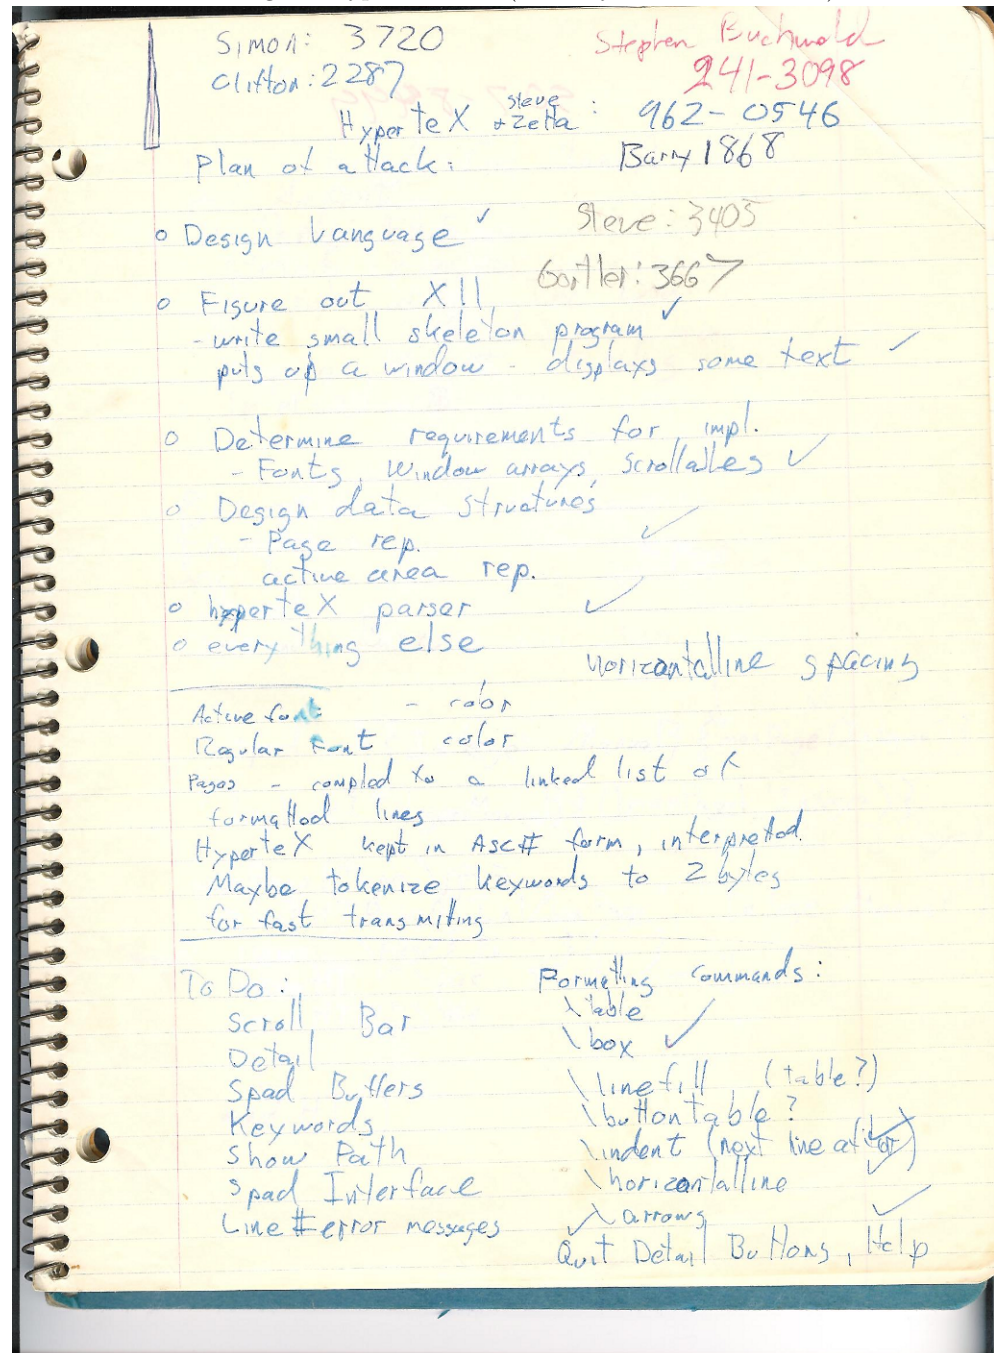 Simon: 3720
Stephen Buchwald
Clifton: 2287
241-3098
HyperteX steve + Zetta : 962-0546
Plan of attack:
Barry 1868
o Design Language ✓
Steve: 3405
3667
o Figure out X11
- write small skeleton program ✓
puts up a window - displays some text ✓
o Determine requirements for impl.
- Fonts, Window arrays, scrollables ✓
o Design data structures
- Page rep. ✓
active area rep.
o hyperteX parser ✓
o everything else
horizontalline spacing
Active font - color
Regular Font color
Pages - compiled to a linked list of
formatted lines
HyperteX kept in ASCII form, interpreted.
Maybe tokenize keywords to 2 bytes
for fast transmiting
To Do:
Scroll Bar
Detail
Spad Buffers
Keywords
Show Path
Spad Interface
Line # error messages
Formatting commands:
\table
\box ✓
\linefill (table?)
\buttontable?
\indent (next line
\horizontalline ✓
✓ \arrows ✓
Quit Detail Buttons, Help